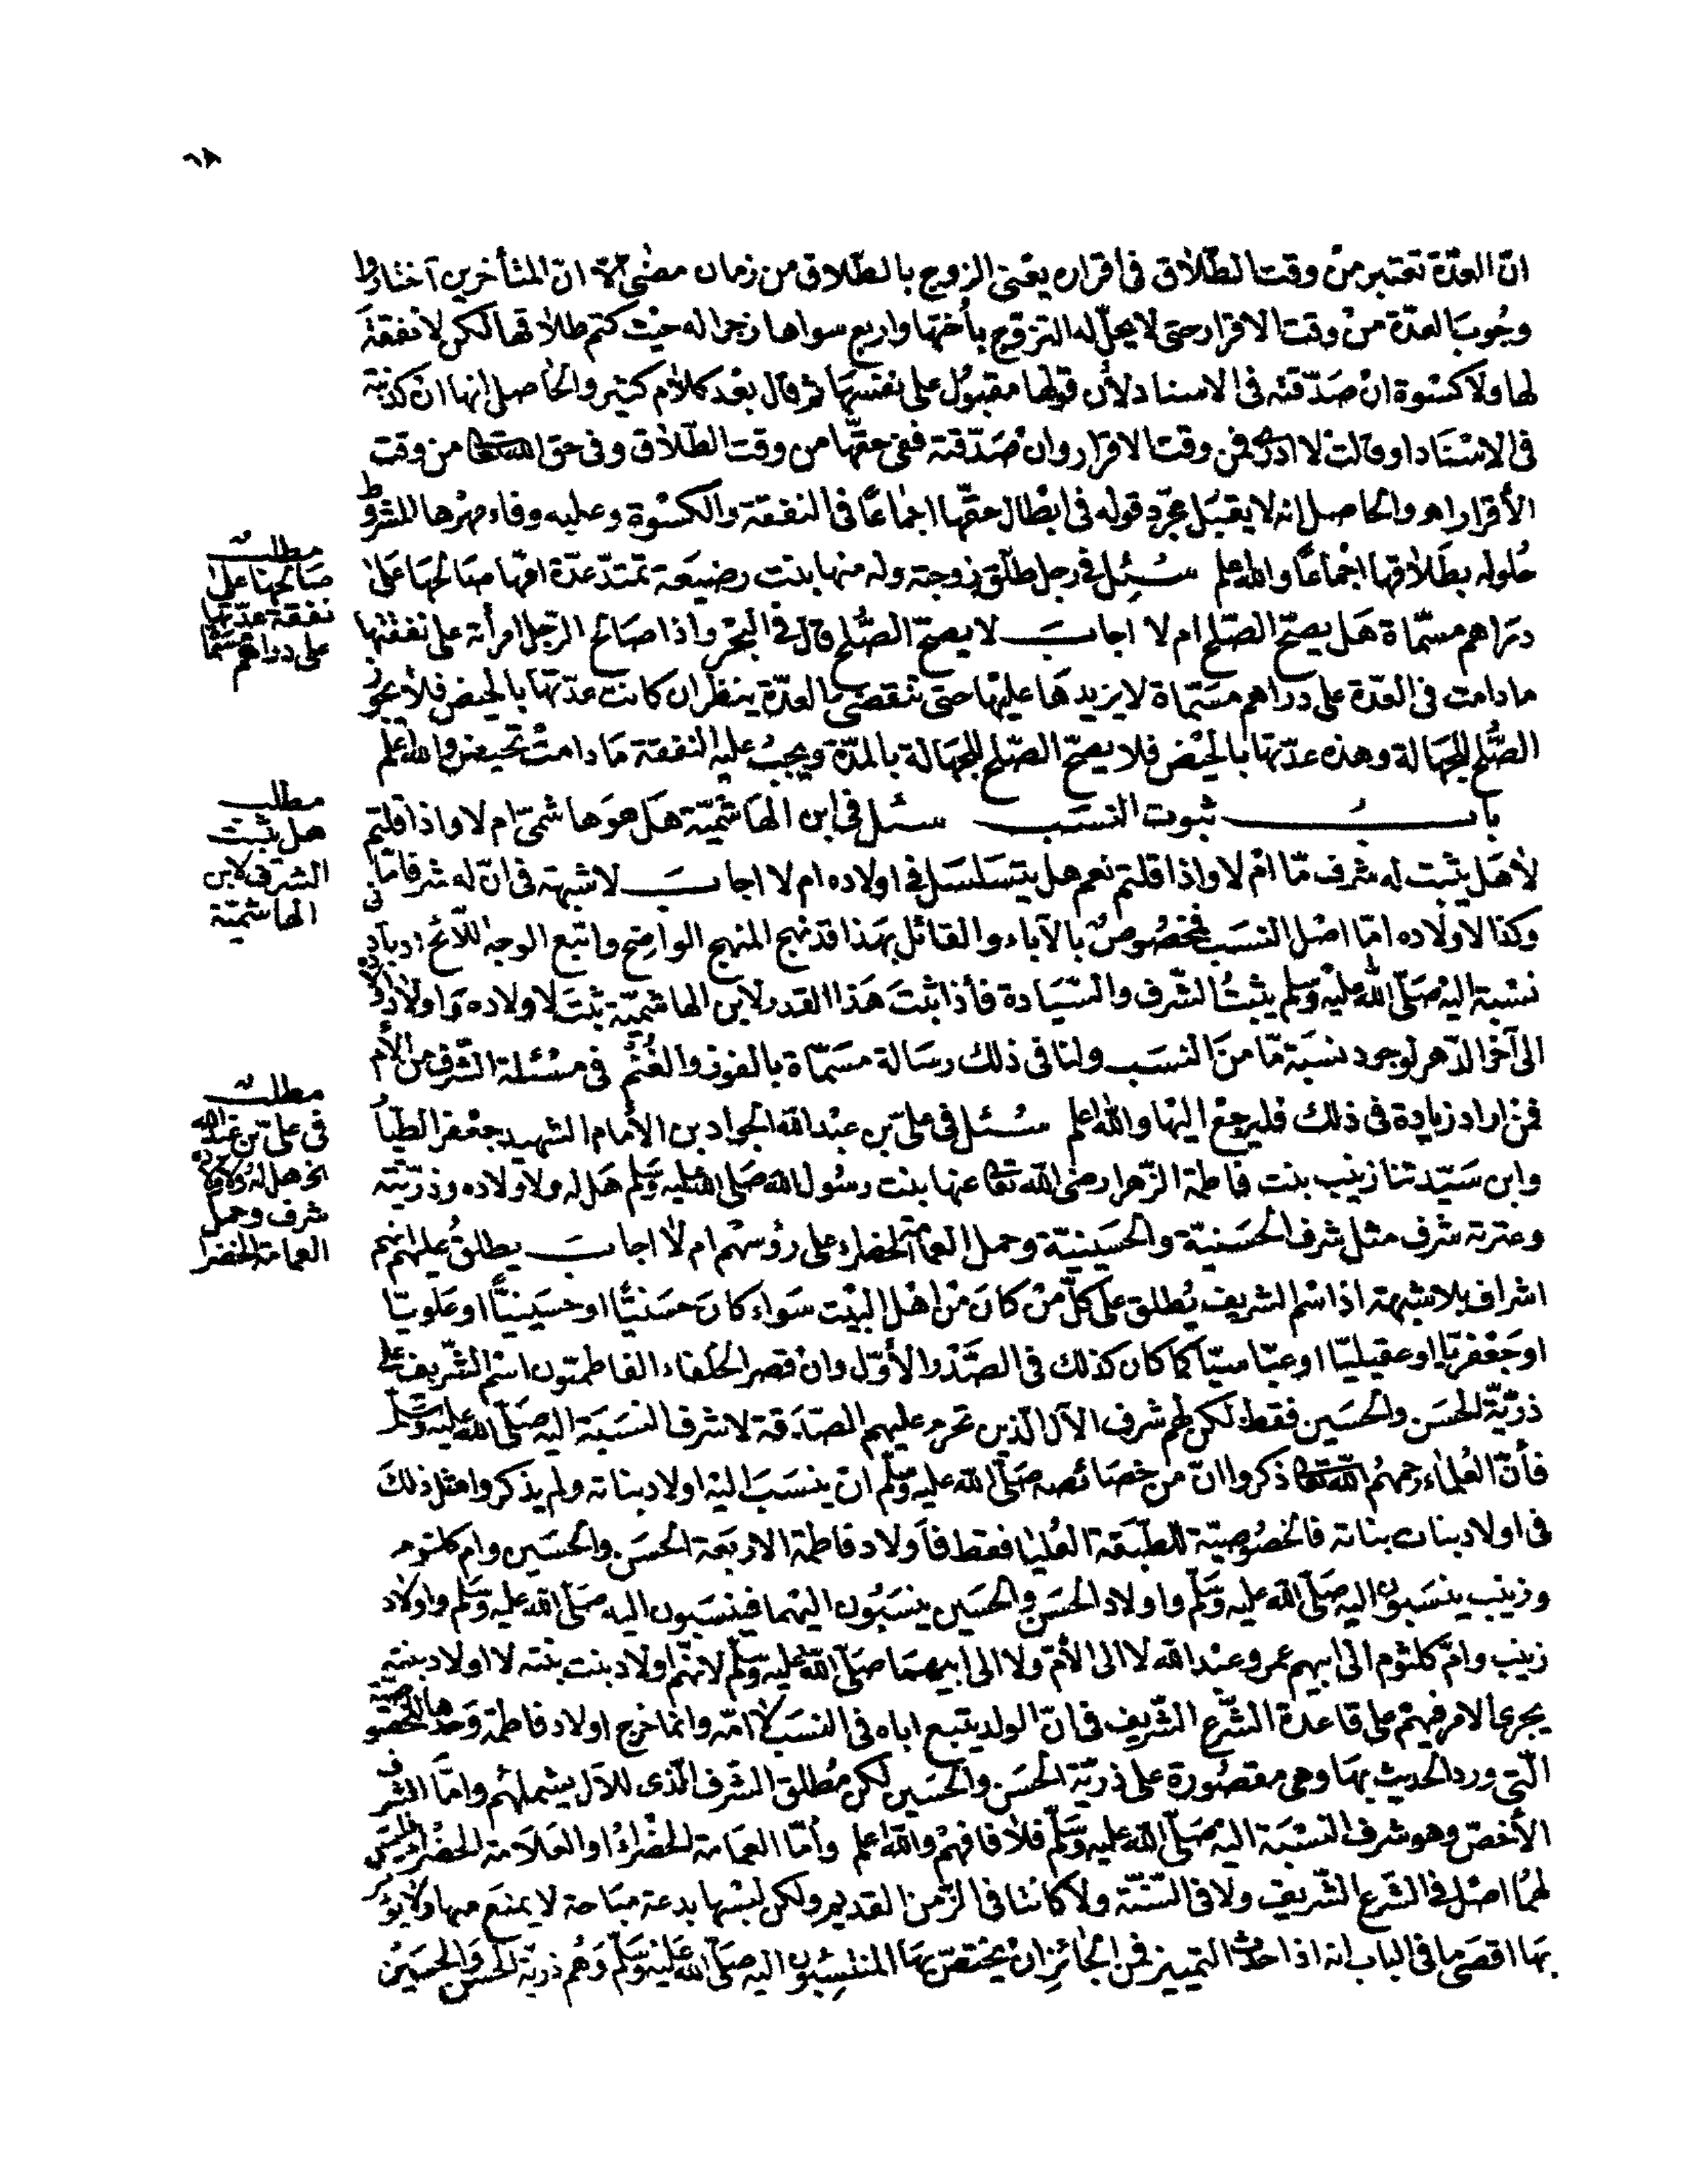 ٦٨
انّ العدّة تعتبر من وقت الطّلاق فى اقراره يعنى الزوج بالطّلاق من زمان مضى الّا انّ المتأخرين اختاروا
وجُوب العدّة من وقت الاقرار حتى لا يحلّ له التزوّج بأختها واربع سواها زجرا له حيث كتم طلاقها لكن لا نفقة
لها ولا كسْوة انْ صَدّقته فى الاسناد لأن قولها مقبول على نفسها ثم قال بعد كلام كثير والحاصل انها ان كذبته
فى الاسْناد او قالت لا ادرى فمن وقت الاقرار وان صَدّقته ففى حقّها من وقت الطّلاق وفى حق الله تعالى من وقت
الأقرار اهـ والحاصل انه لا يقبَل مجرّد قوله فى ابْطال حقّها اجماعًا فى النفقة والكسْوة وعليه وفاء مهرْها المشروط
حُلوله بطَلاقها اجْماعًا والله اعلم سُئِل فى رجل طلّق زوجته وله منها بنت رضيعَة تمتدّ عدّة امّها صَالحهَا على
درَاهم مسمّاة هَل يصحّ الصّلح ام لا اجابَ لا يصحّ الصُّلح قال فى البحْر واذا صَالح الرّجل امرأته على نفقتها
ما دامت فى العدّة على دراهم مسَمّاة لا يزيدهَا عليهَا حتى تنقضى العدّة ينظر ان كانت عدّتها بالحيض فلا يجوز
الصُّلح للجَهالة وهذه عدّتها بالحَيْض فلا يصحّ الصّلح للجهَالة بالمدّة ويجبُ عليه النفقة مَا دامتْ تحيض والله اعلم
بابُ ثبوت النسَب سئل فى ابن الهَاشميّة هَل هوَ هاشمىّ ام لا واذا قلتم
لا هَل يثبت له شرف مّا امْ لا واذا قلتم نعم هل يتسَلسَل فى اولاده ام لا اجابَ لا شبهة فى انّ له شرفا مّا
وكذا لاولاده امّا اصْل النسَب فمخصُوصٌ بالآباء والقائل بهَذا قد نهج المنهج الواضح واتبع الوجه اللّائح اذ بادنى
نسْبة اليْه صَلّى الله عليْه وسَلم يثبتُ الشّرف والسّيَادة فأذا ثبتَ هَذا القدر لابن الهاشميّة ثبَتَ لاولاده وَاولاد اولاده
الى آخر الدّهر لوجود نسبَة مّا منَ النسَب ولنا فى ذلك رسَالة مسَمّاة بالفوز والغُنْم فى مسْئلة الشّرف من الأم
فمنْ اراد زيادة فى ذلك فليرجعْ اليْها والله اعلم سُئل فى علىّ بن عبْد الله الجواد بن الأمام الشهيد جعْفر الطيّار
وابن سَيّدتنا زينب بنت فاطمة الزّهرا رضى الله تعالى عنها بنت رسُول الله صَلى الله عليه وسَلم هَل له ولاولاده وذرّيّته
وعترته شرَف مثل شرف الحَسَنيّة والحُسَينيّة وحمل العمامة الخضراء على رؤسْهم ام لا اجابَ يطلقُ عليهْم انهم
اشراف بلا شبهة اذ اسْم الشريف يُطلق على كلّ منْ كانَ منْ اهْل البيْت سَواء كانَ حسَنيًّا او حسَينيًّا او عَلويّا
او جَعْفريّا او عقيليّا او عبّاسيّا كما كان كذلك فى الصَّدْر الأوّل وانْ قصر الخلفاء الفاطميّون اسْم الشّريف على
ذرّيّة الحسَن والحسَين فقط لكن لهم شرف الآل الّذين تحرم عليهم الصّدَقة لا شرف النسَبَة اليه صَلّى الله عليه وسَلم
فأنّ العُلماء رحمهُم الله تعالى ذكروا انّ من خصَائصه صَلّى الله عليه وسَلّم ان ينسَبَ اليْه اولاد بناته ولم يذكروا مثل ذلكَ
فى اولاد بنات بناته فالخصُوصيّة للطّبَقة العُليَا فقط فأولاد فاطمة الاربَعة الحسَن والحسَين وام كلثوم
وزينب ينسَبون اليه صَلّى الله عليه وسَلّم واولاد الحسَن والحسَين ينسَبُون اليْهما فينسَبون اليه صَلّى الله عليه وسَلم واولاد
زينب وامّ كلثوم الى ابيهم عمر وعبْد الله لا الى الأمّ ولا الى ابيهمَا صَلّى الله عليه وسَلم لانهّم اولاد بنت بنته لا اولاد بنته
يجرى الامر فيهمْ على قاعدة الشّرع الشّريف فى انّ الولد يتبع اباه فى النسَب لا امّه وانما خرج اولاد فاطمة وَحدها للخصُوصيّة
الّتى ورد الحديث بهَا وهى مقصُورة على ذرّيّة الحسَن والحسَين لكن مُطلق الشَرف الّذى للآل يشملهُم وامّا الشرف
الأخصّ وهو شرف النّسْبَة اليْه صَلّى الله عليه وسَلّم فلا فافهمْ والله اعلم وأمّا العمَامة الخضْراءُ او العَلامة الخضْرا فليسَ
لهمَا اصْل فى الشّرع الشّريف ولا فى السّنّة ولا كانتا فى الزّمن القديم ولكن لبْسُها بدعة مبَاحة لا يمنعَ منها ولا يؤمر
بهَا اقصَى ما فى الباب انه اذا احدث التمييز فمن الجَائزِ انْ يختصّ بهَا المنتسبُون اليه صَلّى الله عَليْه وسَلّم وَهُم ذريّة الحسَن وَالحسَيْن
مطلب
صَالحها على
نفقة عدّتها
على دراهم مسَمّاة
مطلب
هل يثبت
الشرف لابن
الهاشميّة
مطلب
فى علىّ بن عبْد الله
الخ هل له ولاولاده
شرف وحمل
العمامة الخضرا